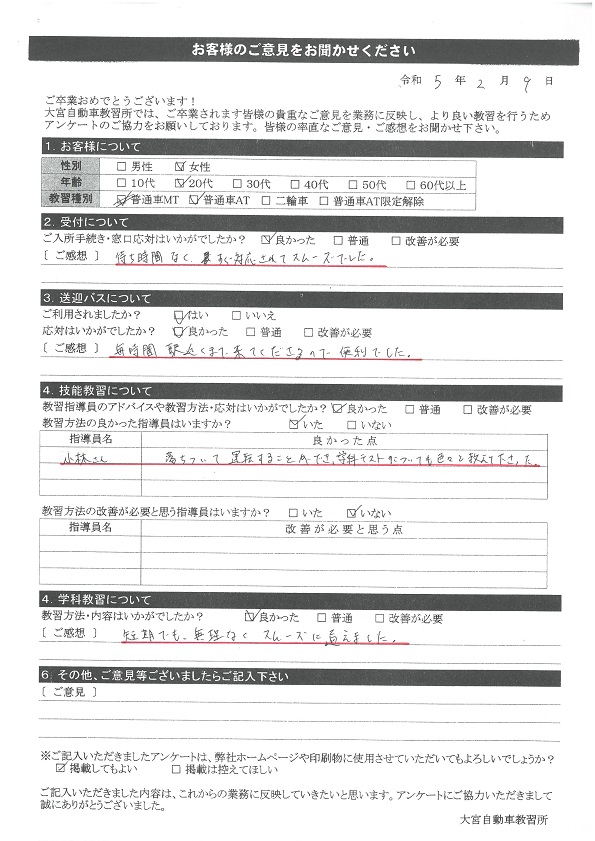 お客様のご意見をお聞かせください
令和 5 年 2 月 9 日
ご卒業おめでとうございます!
大宮自動車教習所では、ご卒業されます皆様の貴重なご意見を業務に反映し、より良い教習を行うため
アンケートのご協力をお願いしております。皆様の率直なご意見・ご感想をお聞かせ下さい。
1. お客様について
性別 □ 男性 ☑ 女性
年齢 □ 10代 ☑ 20代 □ 30代 □ 40代 □ 50代 □ 60代以上
教習種別 ☑ 普通車MT ☑ 普通車AT □ 二輪車 □ 普通車AT限定解除
2. 受付について
ご入所手続き・窓口応対はいかがでしたか? ☑ 良かった □ 普通 □ 改善が必要
[ ご感想 ] 待ち時間なく、対応されてスムーズでした。
3. 送迎バスについて
ご利用されましたか? ☑ はい □ いいえ
応対はいかがでしたか? ☑ 良かった □ 普通 □ 改善が必要
[ ご感想 ] 毎時間 駅近くまで来てくださるので 便利でした。
4. 技能教習について
教習指導員のアドバイスや教習方法・応対はいかがでしたか? ☑ 良かった □ 普通 □ 改善が必要
教習方法の良かった指導員はいますか? ☑ いた □ いない
指導員名 良かった点
小林さん 落ちついて 運転することができ、学科テストについても色々と教えて下さった。
教習方法の改善が必要と思う指導員はいますか? □ いた ☑ いない
指導員名 改善が必要と思う点
4. 学科教習について
教習方法・内容はいかがでしたか? ☑ 良かった □ 普通 □ 改善が必要
[ ご感想 ] 短期でも、無理なく スムーズに えました。
6. その他、ご意見等ございましたらご記入下さい
[ ご意見 ]
※ご記入いただきましたアンケートは、弊社ホームページや印刷物に使用させていただいてもよろしいでしょうか?
☑ 掲載してもよい □ 掲載は控えてほしい
ご記入いただきました内容は、これからの業務に反映していきたいと思います。アンケートにご協力いただきまして
誠にありがとうございました。
大宮自動車教習所